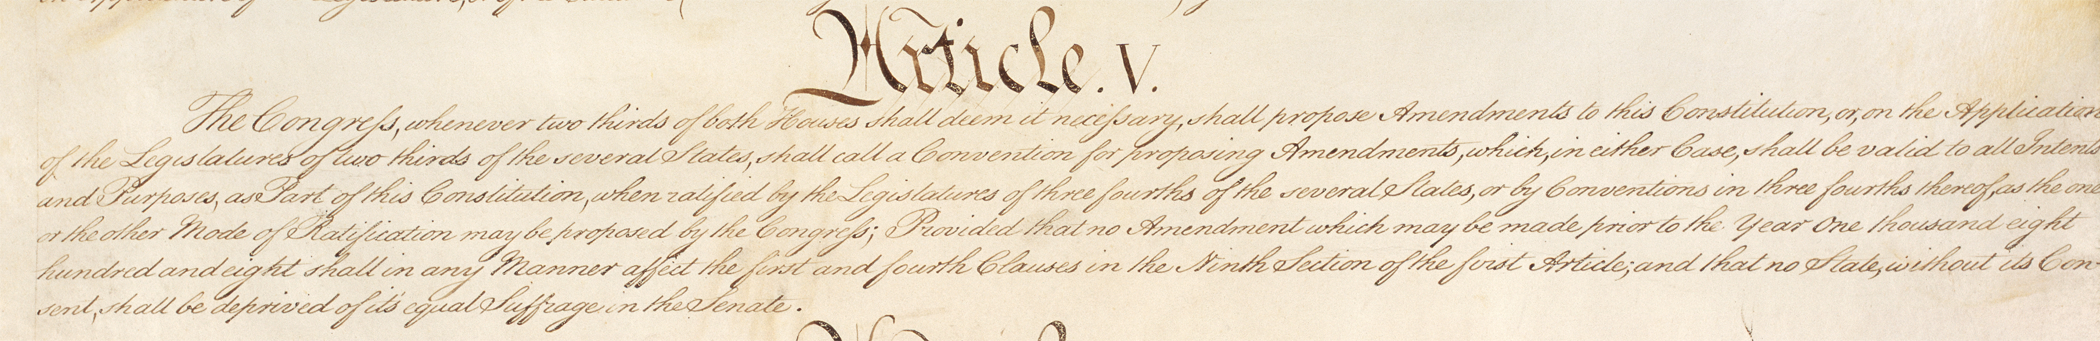 Article. V.
The Congress, whenever two thirds of both Houses shall deem it necessary, shall propose Amendments to this Constitution, or, on the Application
of the Legislatures of two thirds of the several States, shall call a Convention for proposing Amendments, which, in either Case, shall be valid to all Intents
and Purposes, as Part of this Constitution, when ratified by the Legislatures of three fourths of the several States, or by Conventions in three fourths thereof, as the one
or the other Mode of Ratification may be proposed by the Congress; Provided that no Amendment which may be made prior to the Year One thousand eight
hundred and eight shall in any Manner affect the first and fourth Clauses in the Ninth Section of the first Article; and that no State, without its Con-
sent, shall be deprived of it's equal Suffrage in the Senate.